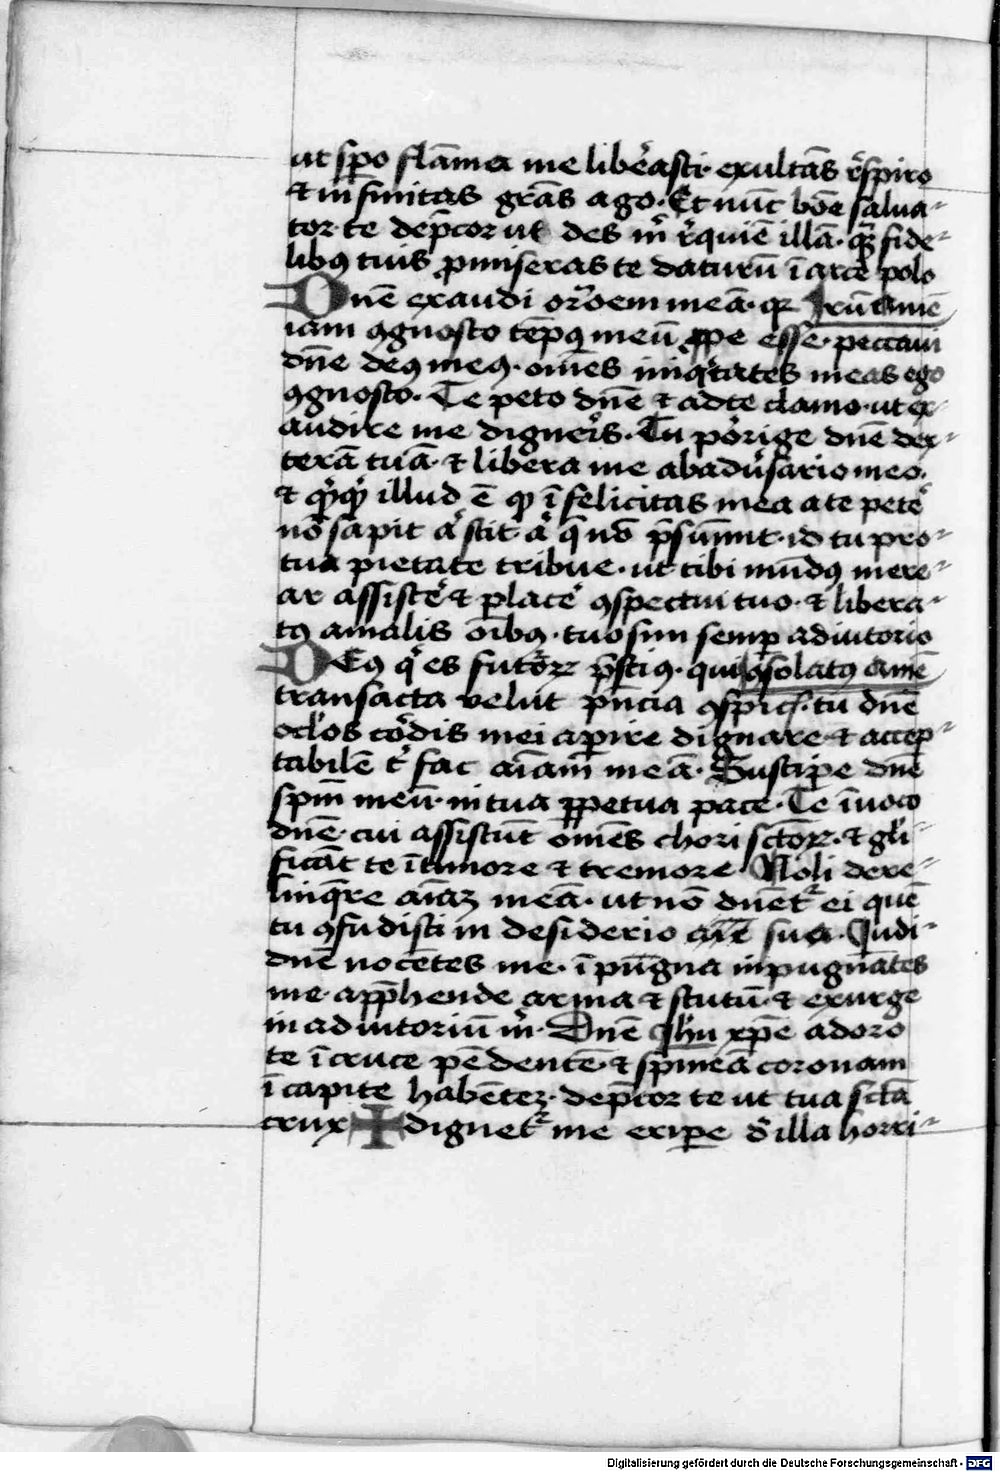 ut spero flāmea me libẽasti· exultās rẽspiro
et infinitas gr̄as ago· Et nūc bōe salua-
tor te dep̄cor ut des m̄ rẽquiē illā· qz fide-
libꝰ tuis ꝓmiseras te daturū ī arce polo
Dn̄e exaudi or̄oem meā· qz rū ame̅
iam ꝯgnosco tēpꝰ meū ꝓpe esse· peccaui
dn̄e deꝰ meꝰ· om̄es iniq̇tates meas ego
ꝯgnosco· Te peto dn̄e et ad te clamo· ut ex-
audire me digneris· Tu porrige dn̄e dex-
terā tuā· et libera me ab adũsario meo·
et illud ē ꝙ īfelicitas mea a te petẽ
nō sapit a̍ scit· a̍ q̄ nō p̄sūmit· id tu pro-
tua pietate tribue· ut tibi mūdꝰ mere-
ar assistẽ et placẽ ꝯspectui tuo· et libera-
tꝰ a malis oībꝰ· tuo sim semꝑ adiutorio
Deꝰ q̍ es futõrꝝ p̄sciꝰ· qui ꝯsolatꝰ amē
transacta velut p̄ncia ꝯspicis· tu dn̄e
oc̄los cõdis mei aꝑire dignare et accep-
tabilē t̍ fac aīam meā· Suscipe dn̄e
spm̄ meū· in tua ꝑpetua pace· Te īuoco
dn̄e· cui assistūt om̄es chori sc̄torꝝ· et gl̄i-
ficāt te ī timore et tremore· Noli dere-
linq̄re aīaz meā· ut nō dn̄etᷣ ei quē
tu ꝯfudisti in desiderio aīe sue· Iudi-
dn̄e nocētes me· ī pūgna inpugnātes
me· app̄hende arma et scutū· et exurge
in adiutoriū m̍· Dn̄e Ih̄u xp̄e adoro
te ī cruce pēdentē· et spineā coronam
ī capite habētez· dep̄cor te ut tua sc̄tā
crux ✠ dignetᷣ me eriꝑe d̍ illa horri-
Digitalisierung gefördert durch die Deutsche Forschungsgemeinschaft - DFG